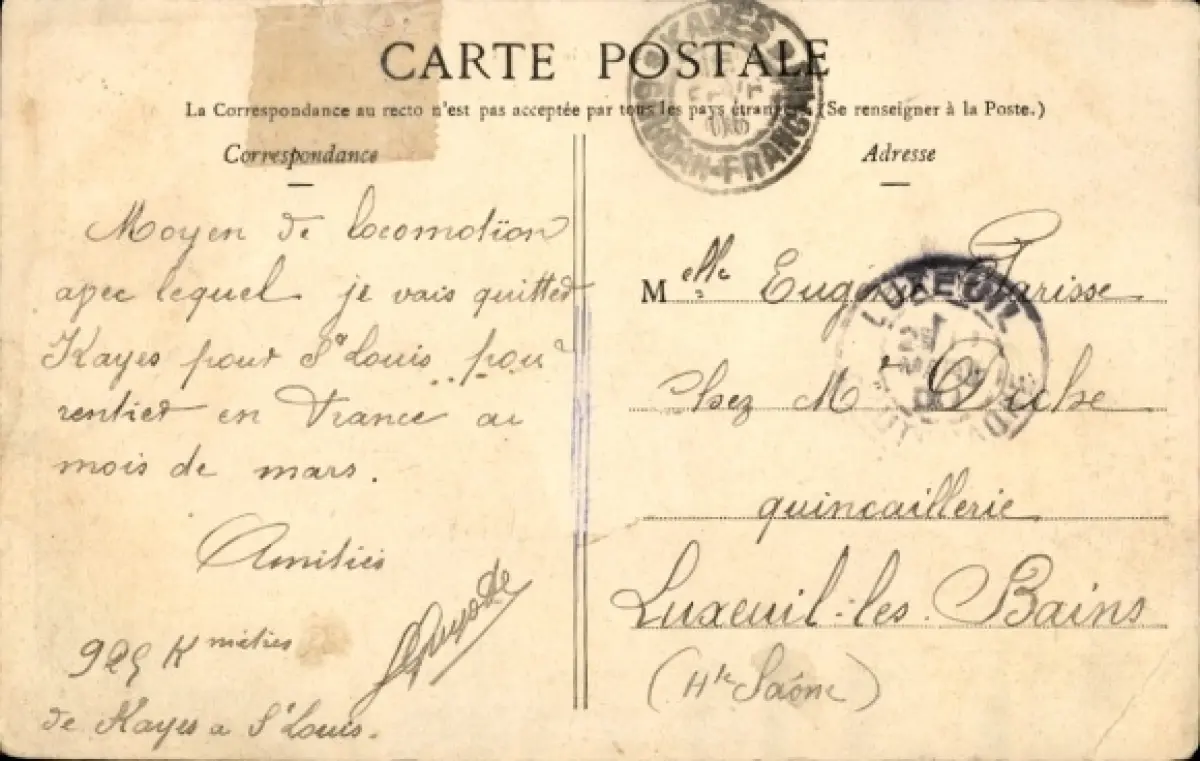 CARTE POSTALE
La Correspondance au recto n'est pas acceptée par tous les pays étrangers (Se renseigner à la Poste.)
Correspondance
Moyen de locomotion
avec lequel je vais quitter
Kayes pour St Louis pour
rentrer en France au
mois de mars.
Amitiés
925 Kmètres
de Kayes a St Louis.
KAYES
SOUDAN-FRANÇAIS
Adresse
Melle Eugénie Parisse
Chez M
quincaillerie
Luxeuil-les-Bains
(Hte Saône)
LUXEUIL